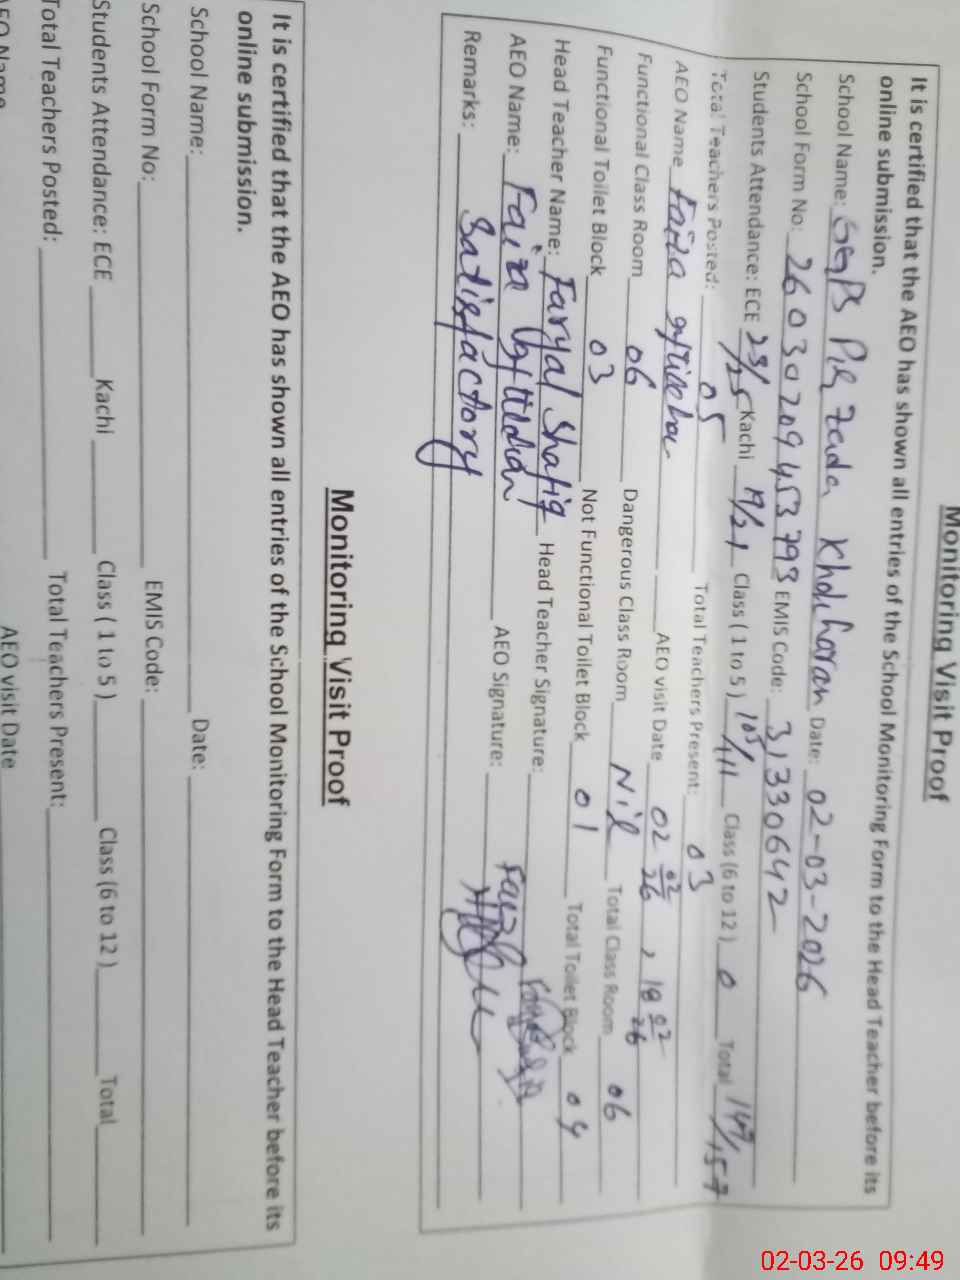 Monitoring Visit Proof
It is certified that the AEO has shown all entries of the School Monitoring Form to the Head Teacher before its
online submission.
School Name: GGPS Pir Zada Khdiharan Date: 02-03-2026
School Form No: 26030209453793 EMIS Code: 31330642
Students Attendance: ECE 23/25 Kachi 19/21 Class ( 1 to 5 ) 105/111 Class (6 to 12 ) 0 Total 147/157
Total Teachers Posted: 05 Total Teachers Present: 03
AEO Name Faiza AEO visit Date 02 02/26 , 18 02/26
Functional Class Room 06 Dangerous Class Room Nil Total Class Room 06
Functional Toilet Block 03 Not Functional Toilet Block 01 Total Toilet Block 04
Head Teacher Name: Faryal Shafiq Head Teacher Signature:
AEO Name: Faiza AEO Signature:
Remarks: Satisfactory
Monitoring Visit Proof
It is certified that the AEO has shown all entries of the School Monitoring Form to the Head Teacher before its
online submission.
School Name: Date:
School Form No: EMIS Code:
Students Attendance: ECE Kachi Class ( 1 to 5 ) Class (6 to 12 ) Total
Total Teachers Posted: Total Teachers Present:
AEO Name AEO visit Date
02-03-26 09:49